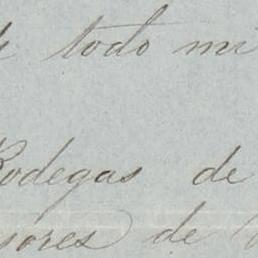 todo mi
Bodegas de
sores de